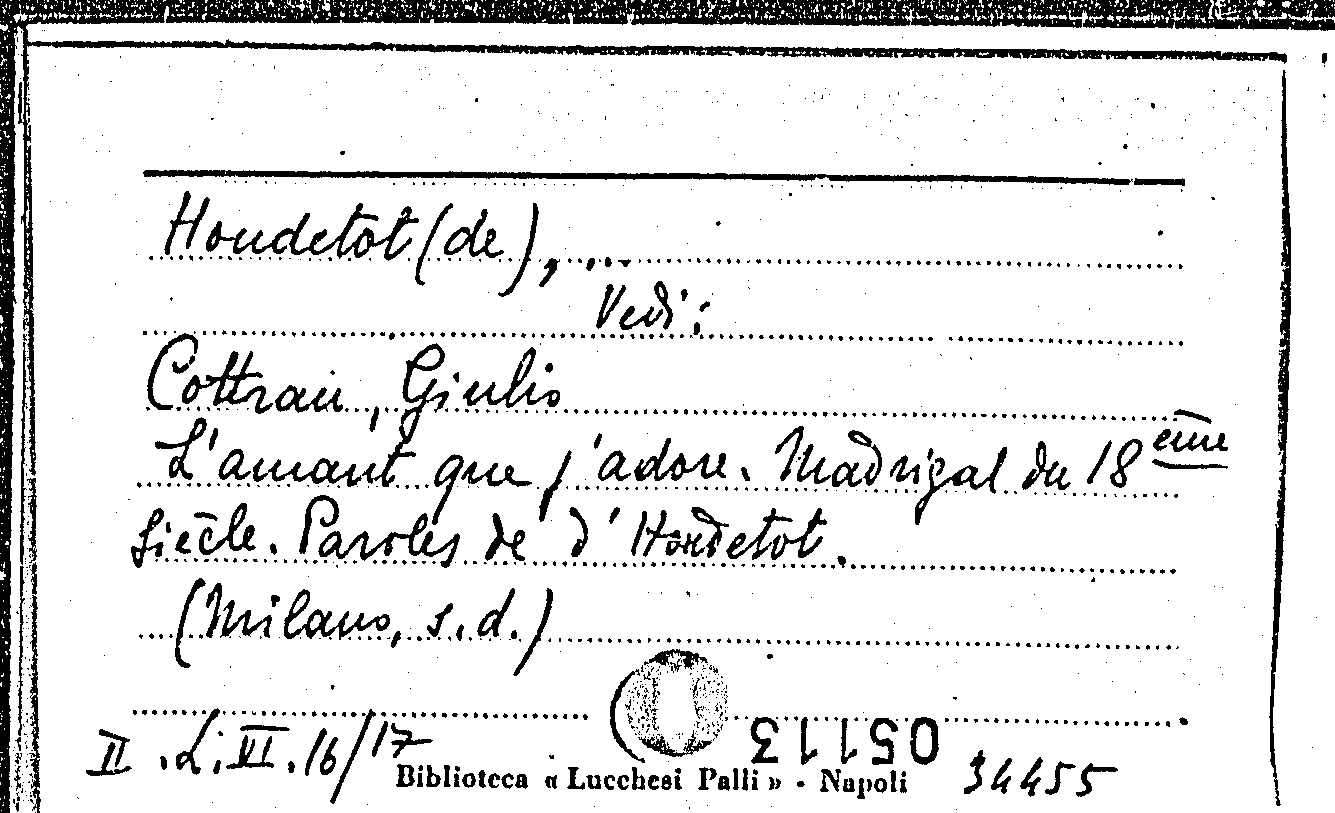 Houdetot (de), ...
Vedi:
Cottrau, Giulio
L'amant que j'adore. Madrigal du 18ème
siècle. Paroles de d'Houdetot.
(Milano, s.d.)
II. L. VI. 16/17
05113
Biblioteca « Lucchesi Palli » - Napoli 34455